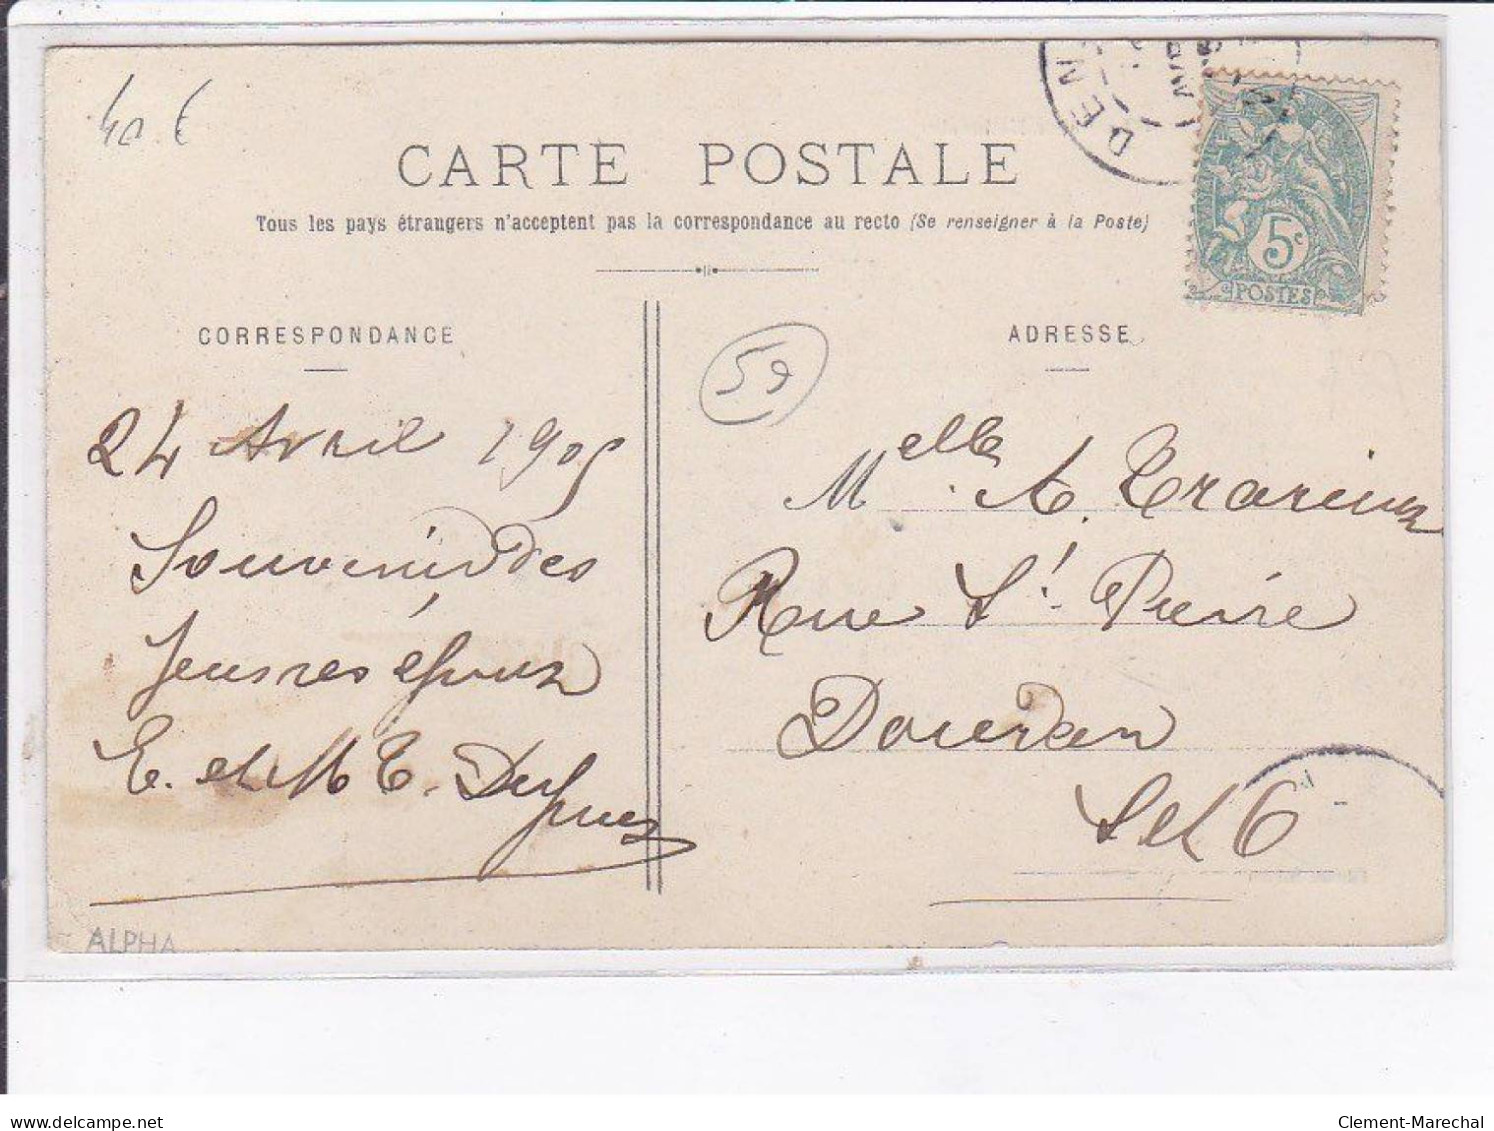 40 €
DEN
AVR
CARTE POSTALE
Tous les pays étrangers n'acceptent pas la correspondance au recto (Se renseigner à la Poste)
5c
POSTES
CORRESPONDANCE
ADRESSE
59
24 Avril 1905
Souvenir des
jeunes époux
E. et M T.
Melle A.
Rue St. Pierre
Dourdan
S et O
ALPHA
www.delcampe.net
Clement-Marechal